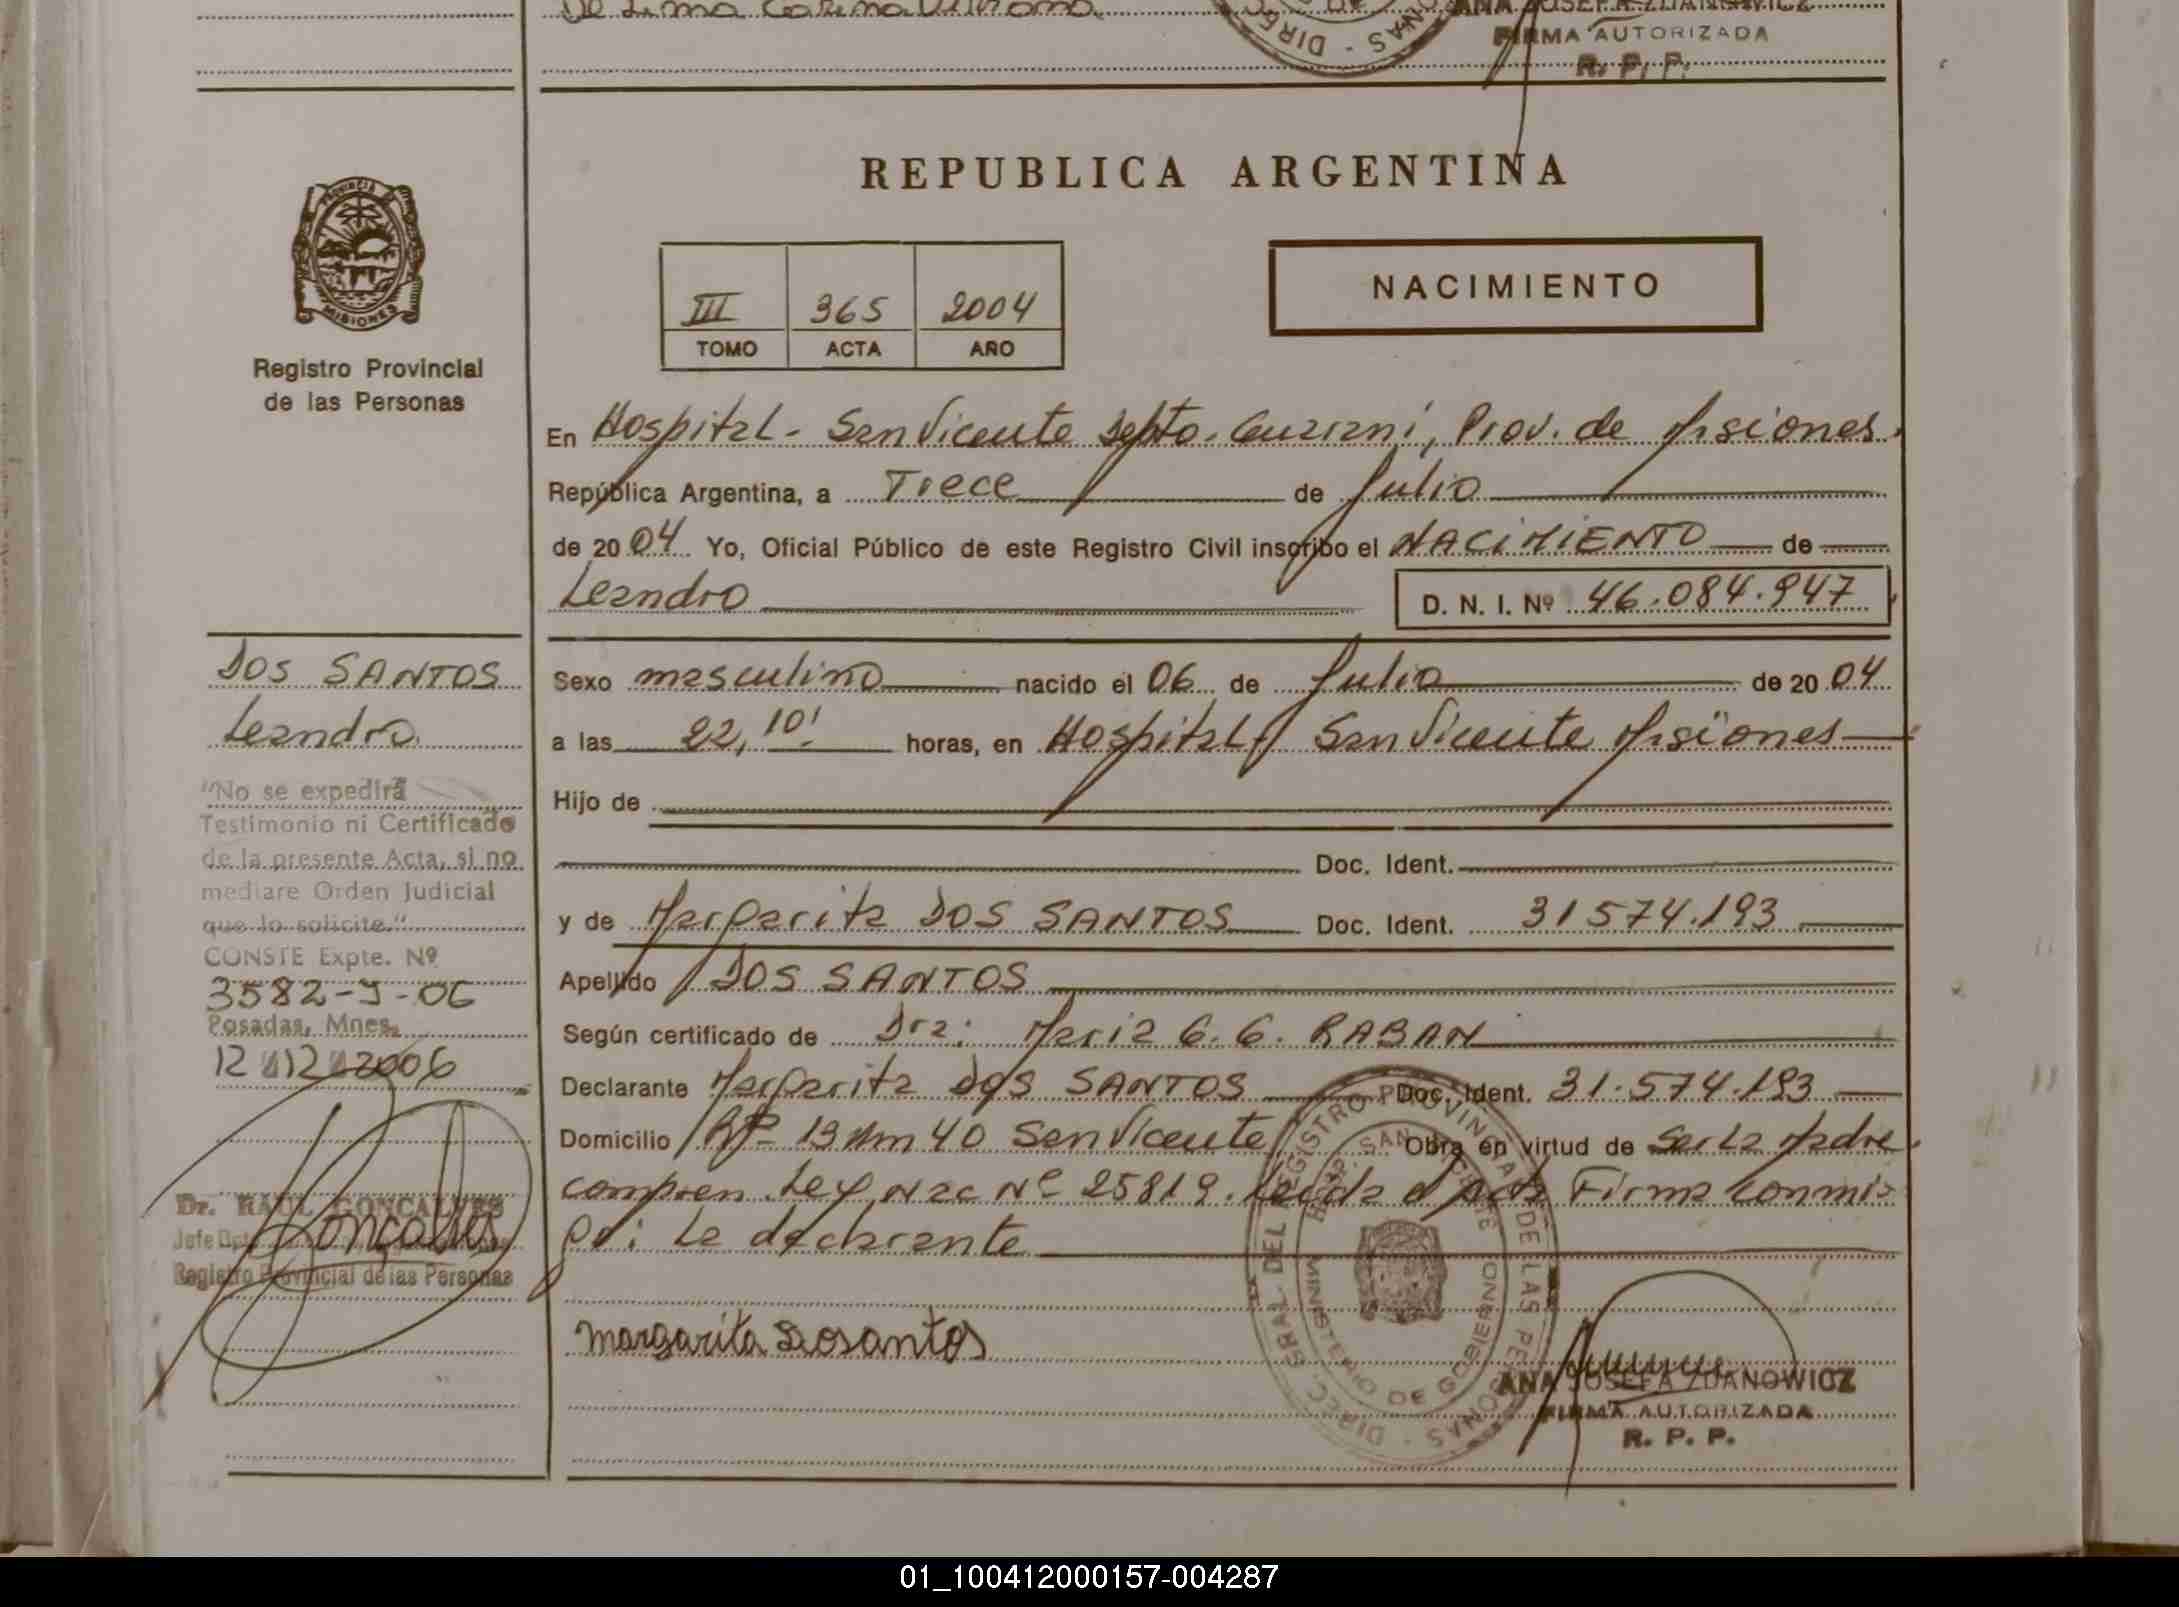 FIRMA AUTORIZADA
R. P. P.
PROVINCIA
MISIONES
Registro Provincial
de las Personas
REPUBLICA ARGENTINA
III 365 2004
TOMO ACTA AÑO
NACIMIENTO
En Hospital - San Vicente Depto. Guaraní, Prov. de Misiones.
República Argentina, a Trece de Julio
de 2004 Yo, Oficial Público de este Registro Civil inscribo el NACIMIENTO de
Leandro D. N. I. Nº 46.084.947
DOS SANTOS
Leandro
"No se expedirá
Testimonio ni Certificado
de la presente Acta, si no
mediare Orden Judicial
que lo solicite."
CONSTE Expte. Nº
3582-J-06
Posadas, Mnes.
12 12 2006
Dr. RAUL GONCALVES
Registro Provincial de las Personas
Sexo masculino nacido el 06 de Julio de 2004
a las 22,10' horas, en Hospital San Vicente Misiones
Hijo de
Doc. Ident.
y de Margarita DOS SANTOS Doc. Ident. 31574.193
Apellido DOS SANTOS
Según certificado de Dra: Maria G. G. RABAN
Declarante Margarita DOS SANTOS Doc. Ident. 31.574.193
Domicilio RP- 13 Km 40 San Vicente Obra en virtud de Ser la Madre
compren. Ley Nac Nº 25819. Leida el acta Firma conmi
go: La declarante
Margarita Dosantos
DIREC. GRAL. DEL REGISTRO PROVINCIAL DE LAS PERSONAS
HOSP. SAN VICENTE
MINISTERIO DE GOBIERNO
ANA JOSEFA ZDANOWICZ
FIRMA AUTORIZADA
R. P. P.
01_100412000157-004287